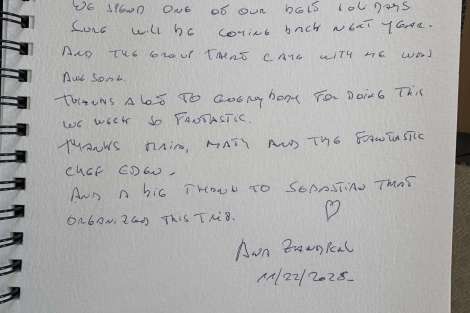 WE SPEND ONE OF OUR BEST HOLIDAYS
SURE WILL BE COMING BACK NEXT YEAR.
AND THE GROUP THAT CAME WITH ME WAS
AWESOME.
THANKS A LOT TO EVERYBODY FOR DOING THIS
WE WEEK SO FANTASTIC.
THANKS MATY AND THE FANTASTIC
CHEF EDEN.
AND A BIG THANK TO SEBASTIAN THAT
ORGANIZED THIS TRIB.
ANA
11/22/2025